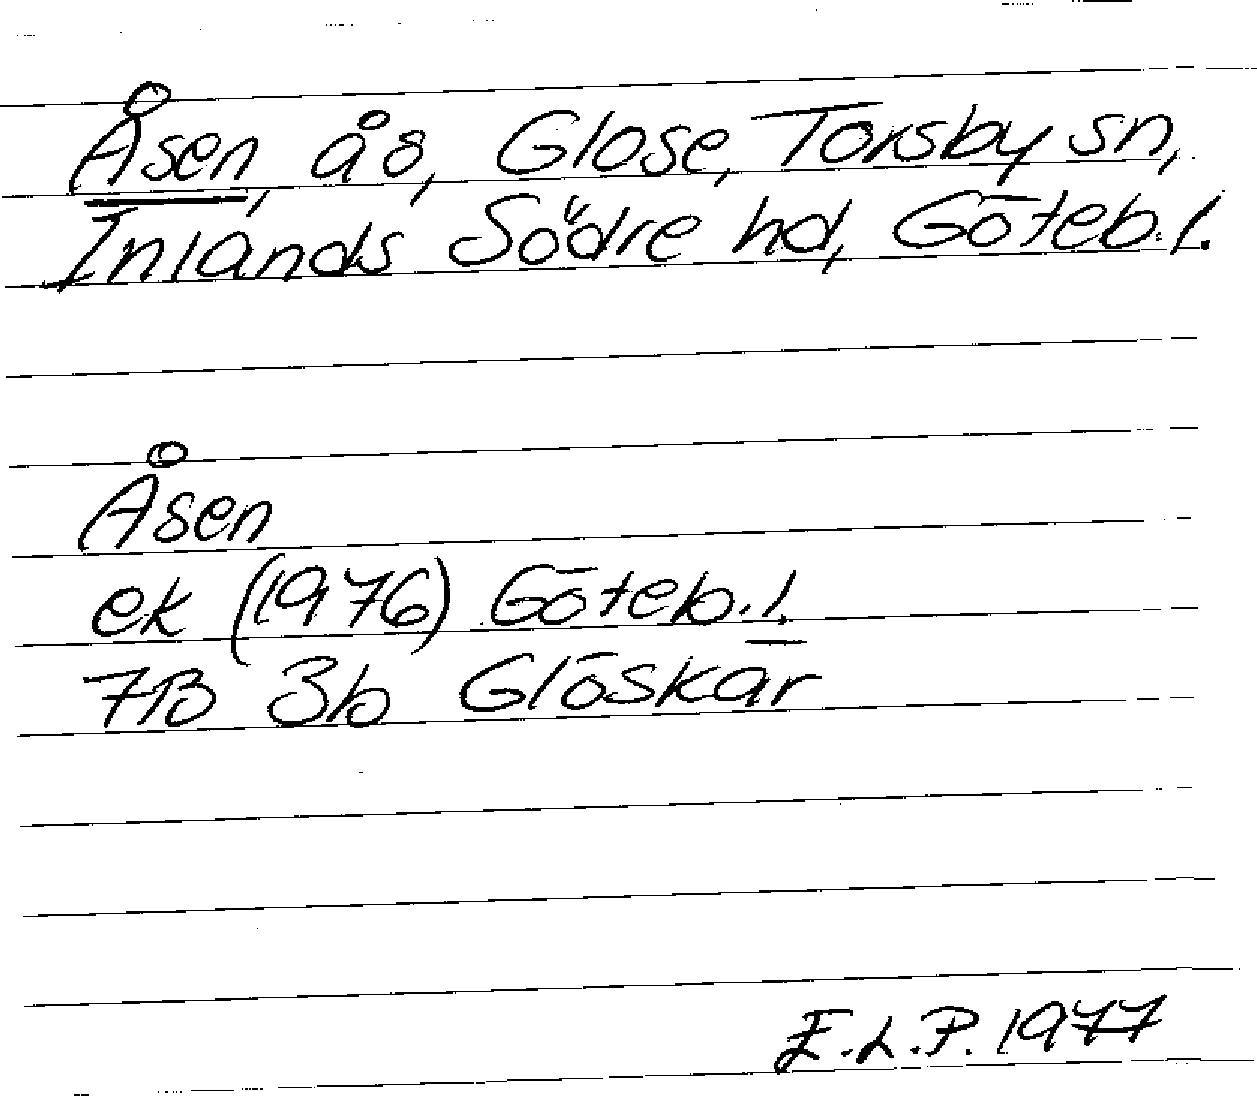 Åsen, ås, Glose, Torsby sn,
Inlands Södre hd, Göteb. l.
Åsen
ek (1976) Göteb. l.
7B 3b Glöskär
E.L.P. 1977